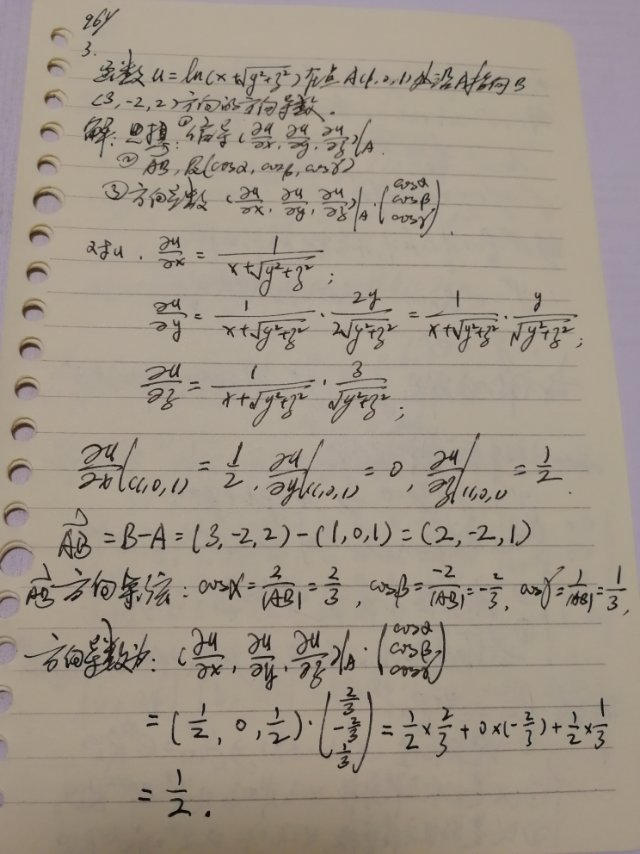 964
3.
函数 u = ln(x+√(y²+z²)) 在点 A(1,0,1) 处沿A指向B
(3,-2,2)方向的方向导数.
解: 思想: ①偏导 (∂u/∂x, ∂u/∂y, ∂u/∂z)|A
② AB, 及(cosα, cosβ, cosγ)
③方向导数 (∂u/∂x, ∂u/∂y, ∂u/∂z)|A · (cosα cosβ cosγ).
对u. ∂u/∂x = 1/(x+√(y²+z²));
∂u/∂y = 1/(x+√(y²+z²)) · 2y/(2√(y²+z²)) = 1/(x+√(y²+z²)) · y/√(y²+z²);
∂u/∂z = 1/(x+√(y²+z²)) · z/√(y²+z²);
∂u/∂x|(1,0,1) = 1/2, ∂u/∂y|(1,0,1) = 0, ∂u/∂z|(1,0,1) = 1/2.
AB = B-A = (3,-2,2)-(1,0,1) = (2,-2,1)
AB 方向余弦: cosα = 2/|AB| = 2/3, cosβ = -2/|AB| = -2/3, cosγ = 1/|AB| = 1/3,
方向导数为: (∂u/∂x, ∂u/∂y, ∂u/∂z)|A · (cosα cosβ cosγ)
= (1/2, 0, 1/2) · (2/3 -2/3 1/3) = 1/2 × 2/3 + 0×(-2/3) + 1/2 × 1/3
= 1/2.